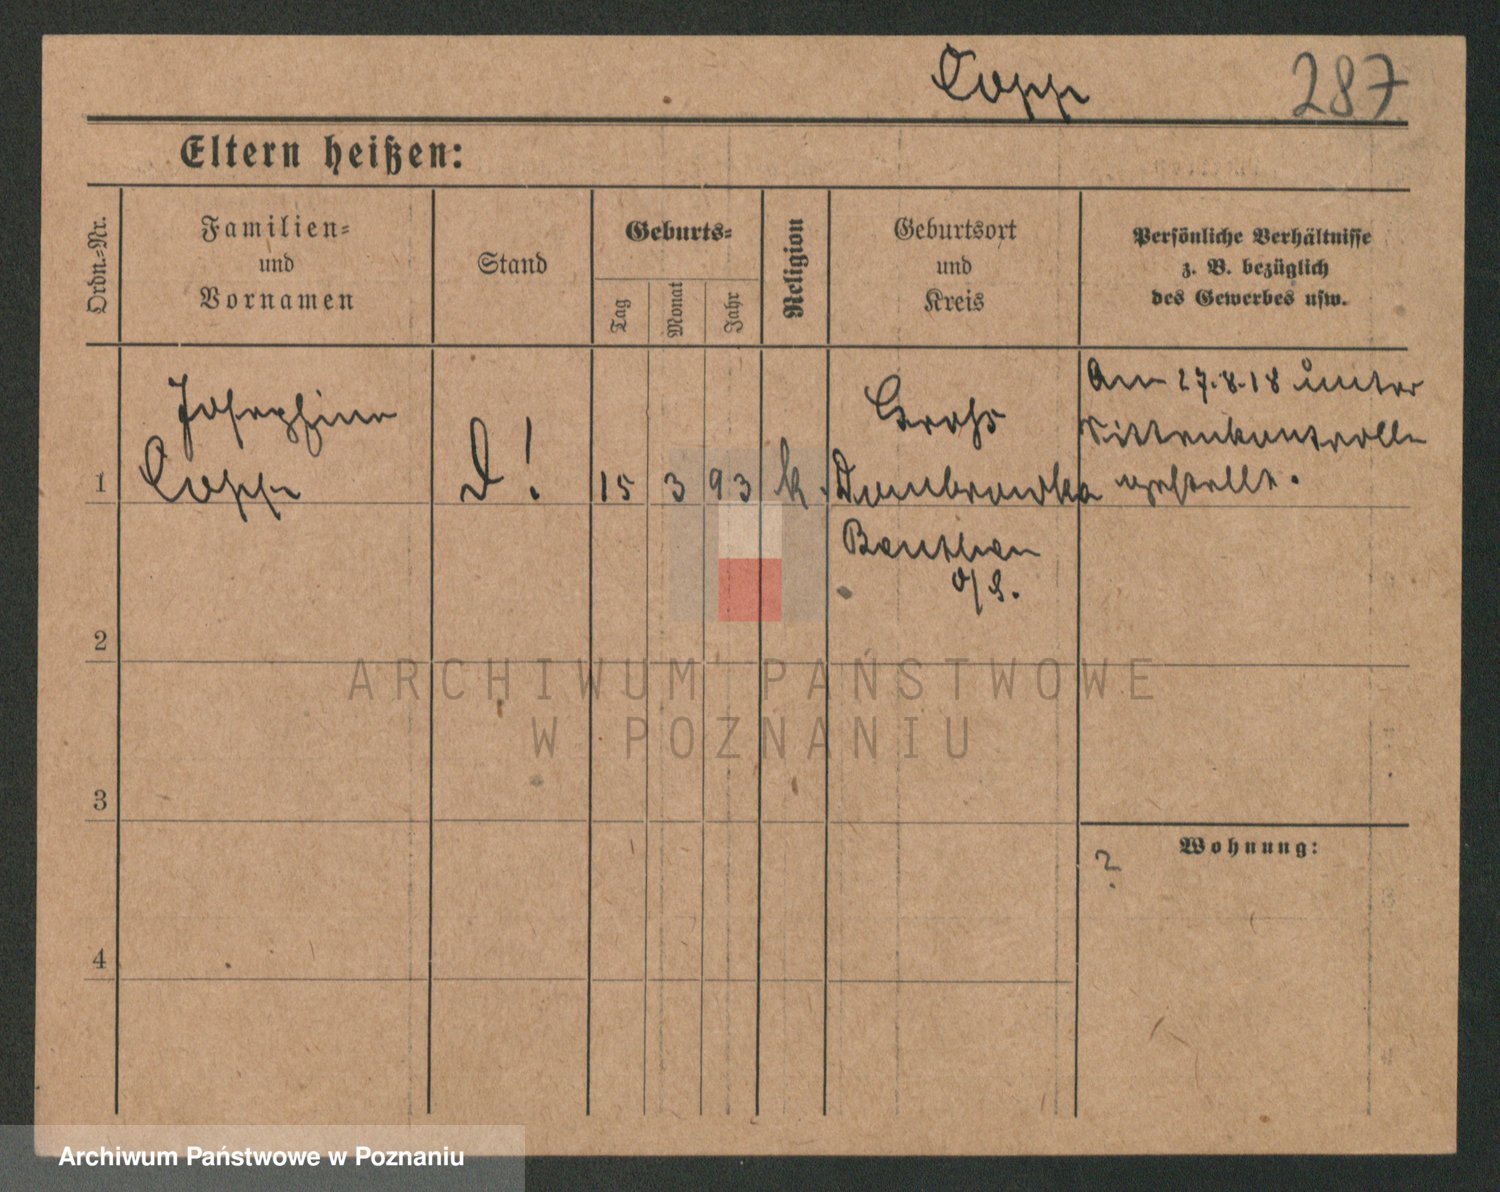 Copp 287
Eltern heißen:
Ordn.-Nr.
Familien-
und
Vornamen
Stand
Geburts-
Tag
Monat
Jahr
Religion
Geburtsort
und
Kreis
Persönliche Verhältnisse
z. B. bezüglich
des Gewerbes usw.
Josephine
Copp
1
D!
15 3 93 k.
Groß
Dombrowka
Beuthen
o/S.
Am 27.8.18 unter
Sittenkontrolle
gestellt.
2
3
4
Wohnung:
?
ARCHIWUM PAŃSTWOWE
W POZNANIU
Archiwum Państwowe w Poznaniu